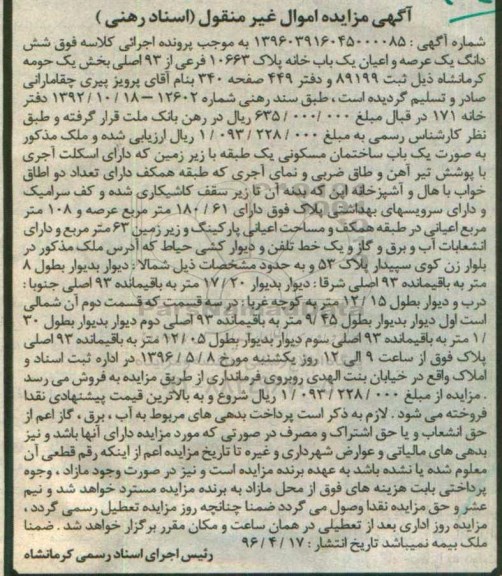 آگهی مزایده اموال غیر منقول (اسناد رهنی)
شماره آگهی : ۱۳۹۶۰۳۹۱۶۰۴۵۰۰۰۰۸۵ به موجب پرونده اجرائی کلاسه فوق شش
دانگ یک عرصه و اعیان یک باب خانه پلاک ۱۰۶۶۳ فرعی از ۹۳ اصلی بخش یک حومه
کرمانشاه ذیل ثبت ۸۹۱۹۹ و دفتر ۴۴۹ صفحه ۳۴۰ بنام آقای پرویز پیری چقامارانی
صادر و تسلیم گردیده است ، طبق سند رهنی شماره ۱۲۶۰۲ – ۱۳۹۲/۱۰/۱۸ دفتر
خانه ۱۷۱ در قبال مبلغ ۶۳۵/۰۰۰/۰۰۰ ریال در رهن بانک ملت قرار گرفته و طبق
نظر کارشناس رسمی به مبلغ ۱/۰۹۳/۲۲۸/۰۰۰ ریال ارزیابی شده و ملک مذکور
به صورت یک باب ساختمان مسکونی یک طبقه با زیر زمین که دارای اسکلت آجری
با پوشش تیر آهن و طاق ضربی و نمای آجری که طبقه همکف دارای تعداد دو اطاق
خواب با هال و آشپزخانه این که بدنه آن تا زیر سقف کاشیکاری شده و کف سرامیک
و دارای سرویسهای بهداشتی پلاک فوق دارای ۱۸۰/۶۱ متر مربع عرصه و ۱۰۸ متر
مربع اعیانی در طبقه همکف و مساحت اعیانی پارکینگ و زیر زمین ۶۳ متر مربع و دارای
انشعابات آب و برق و گاز و یک خط تلفن و دیوار کشی حیاط که آدرس ملک مذکور در
بلوار زن کوی سپیدار پلاک ۵۳ و به حدود مشخصات ذیل شمالا : دیوار بدیوار بطول ۸
متر به باقیمانده ۹۳ اصلی شرقا : دیوار بدیوار ۱۷/۲۰ متر به باقیمانده ۹۳ اصلی جنوبا :
درب و دیوار بطول ۱۲/۱۵ متر به کوچه غربا : در سه قسمت که قسمت دوم آن شمالی
است اول دیوار بدیوار بطول ۹/۴۵ متر به باقیمانده ۹۳ اصلی دوم دیوار بدیوار بطول ۳۰
/۱ متر به باقیمانده ۹۳ اصلی سوم دیوار بدیوار بطول ۱۲/۰۵ متر به باقیمانده ۹۳ اصلی
پلاک فوق از ساعت ۹ الی ۱۲ روز یکشنبه مورخ ۱۳۹۶/۵/۸ در اداره ثبت اسناد و
املاک واقع در خیابان بنت الهدی روبروی فرمانداری از طریق مزایده به فروش می رسد
. مزایده از مبلغ ۱/۰۹۳/۲۲۸/۰۰۰ ریال شروع و به بالاترین قیمت پیشنهادی نقدا
فروخته می شود . لازم به ذکر است پرداخت بدهی های مربوط به آب ، برق ، گاز اعم از
حق انشعاب و یا حق اشتراک و مصرف در صورتی که مورد مزایده دارای آنها باشد و نیز
بدهی های مالیاتی و عوارض شهرداری و غیره تا تاریخ مزایده اعم از اینکه رقم قطعی آن
معلوم شده یا نشده باشد به عهده برنده مزایده است و نیز در صورت وجود مازاد ، وجوه
پرداختی بابت هزینه های فوق از محل مازاد به برنده مزایده مسترد خواهد شد و نیم
عشر و حق مزایده نقدا وصول می گردد ضمنا چنانچه روز مزایده تعطیل رسمی گردد ،
مزایده روز اداری بعد از تعطیلی در همان ساعت و مکان مقرر برگزار خواهد شد . ضمنا
ملک بیمه نمیباشد تاریخ انتشار : ۹۶/۴/۱۷
رئیس اجرای اسناد رسمی کرمانشاه